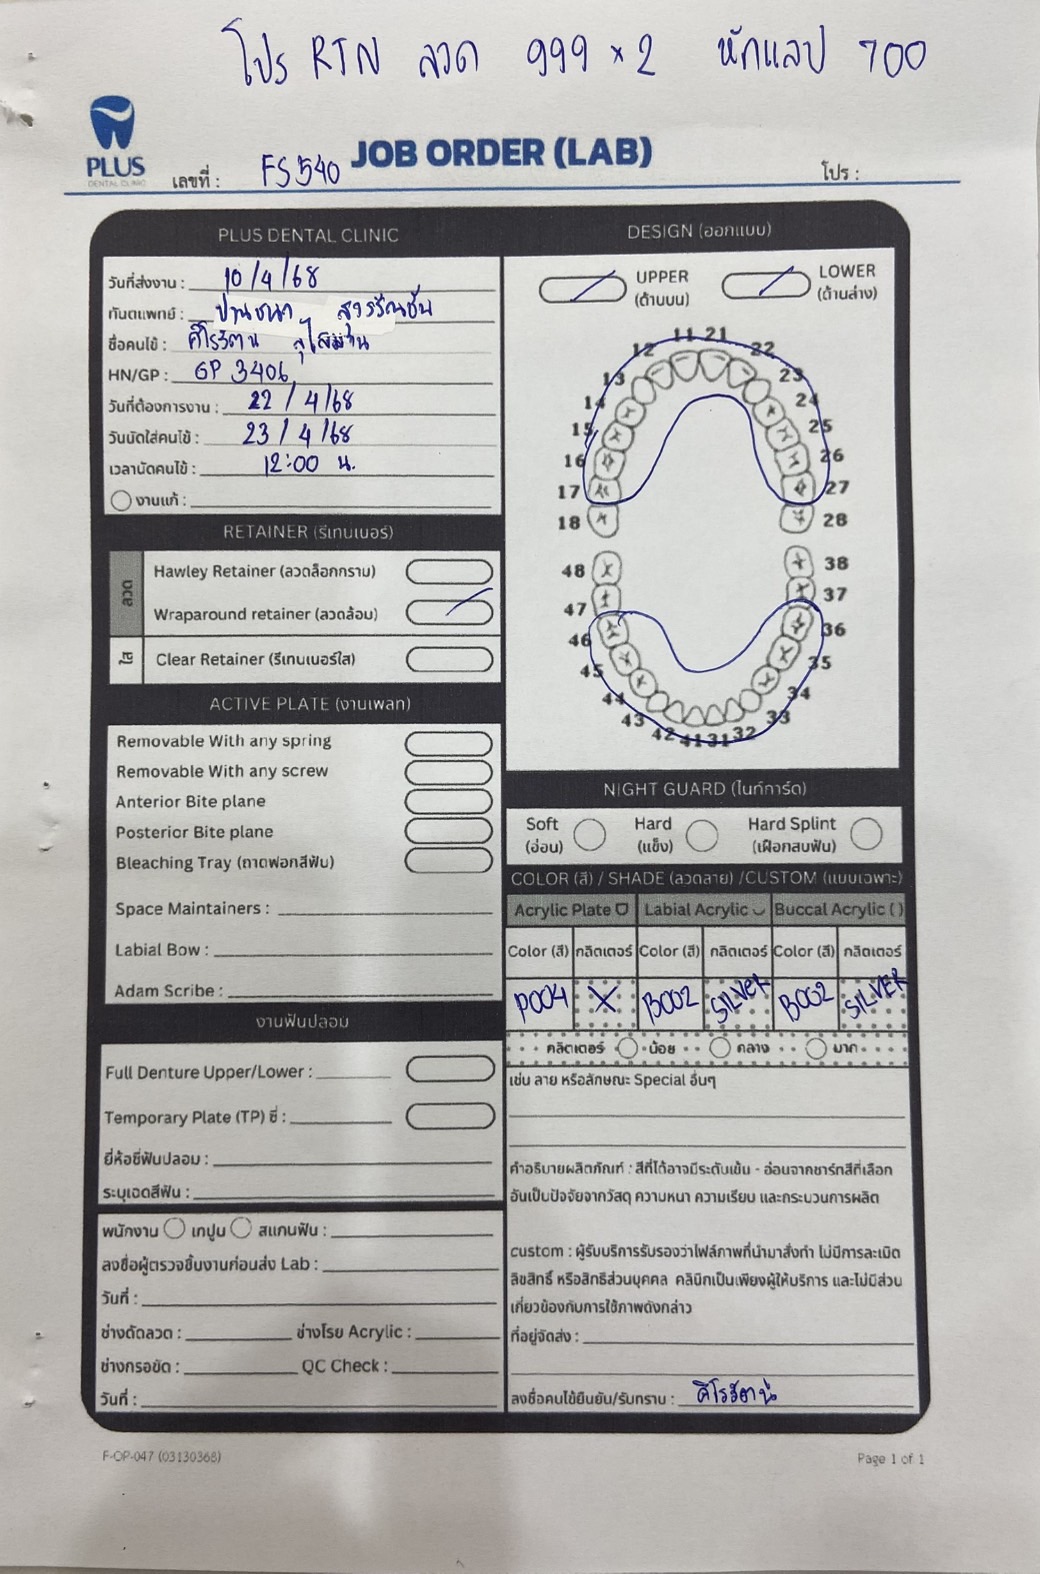 โปร RTN ลวด 999 x 2 หักแลป 700
PLUS
DENTAL CLINIC
JOB ORDER (LAB)
เลขที่ : FS540
โปร :
PLUS DENTAL CLINIC
วันที่ส่งงาน : 10/4/68
ทันตแพทย์ :
ชื่อคนไข้ :
HN/GP : GP 3406
วันที่ต้องการงาน : 22/4/68
วันนัดใส่คนไข้ : 23/4/68
เวลานัดคนไข้ : 12:00 น.
งานแก้ :
RETAINER (รีเทนเนอร์)
ลวด
Hawley Retainer (ลวดล็อกกราม)
Wraparound retainer (ลวดล้อม)
ใส
Clear Retainer (รีเทนเนอร์ใส)
ACTIVE PLATE (งานเพลท)
Removable With any spring
Removable With any screw
Anterior Bite plane
Posterior Bite plane
Bleaching Tray (ถาดฟอกสีฟัน)
Space Maintainers :
Labial Bow :
Adam Scribe :
งานฟันปลอม
Full Denture Upper/Lower :
Temporary Plate (TP) ซี่ :
ยี่ห้อซี่ฟันปลอม :
ระบุเฉดสีฟัน :
พนักงาน เทปูน สแกนฟัน :
ลงชื่อผู้ตรวจชิ้นงานก่อนส่ง Lab :
วันที่ :
ช่างดัดลวด : ช่างโรย Acrylic :
ช่างกรอขัด : QC Check :
วันที่ :
DESIGN (ออกแบบ)
UPPER (ด้านบน) LOWER (ด้านล่าง)
11 21
12 22
13 23
14 24
15 25
16 26
17 27
18 28
48 38
47 37
46 36
45 35
44 34
43 33
42 41 31 32
NIGHT GUARD (ไนท์การ์ด)
Soft (อ่อน) Hard (แข็ง) Hard Splint (เฝือกสบฟัน)
COLOR (สี) / SHADE (ลวดลาย) /CUSTOM (แบบเฉพาะ)
Acrylic Plate Labial Acrylic Buccal Acrylic ( )
Color (สี) กลิตเตอร์ Color (สี) กลิตเตอร์ Color (สี) กลิตเตอร์
P004 X B002 SILVER B002 SILVER
กลิตเตอร์ น้อย กลาง มาก
เช่น ลาย หรือลักษณะ Special อื่นๆ
คำอธิบายผลิตภัณฑ์ : สีที่ได้อาจมีระดับเข้ม - อ่อนจากชาร์ทสีที่เลือก
อันเป็นปัจจัยจากวัสดุ ความหนา ความเรียบ และกระบวนการผลิต
custom : ผู้รับบริการรับรองว่าไฟล์ภาพที่นำมาสั่งทำ ไม่มีการละเมิด
ลิขสิทธิ์ หรือสิทธิส่วนบุคคล คลินิกเป็นเพียงผู้ให้บริการ และไม่มีส่วน
เกี่ยวข้องกับการใช้ภาพดังกล่าว
ที่อยู่จัดส่ง :
ลงชื่อคนไข้ยืนยัน/รับทราบ :
F-OP-047 (03130368)
Page 1 of 1